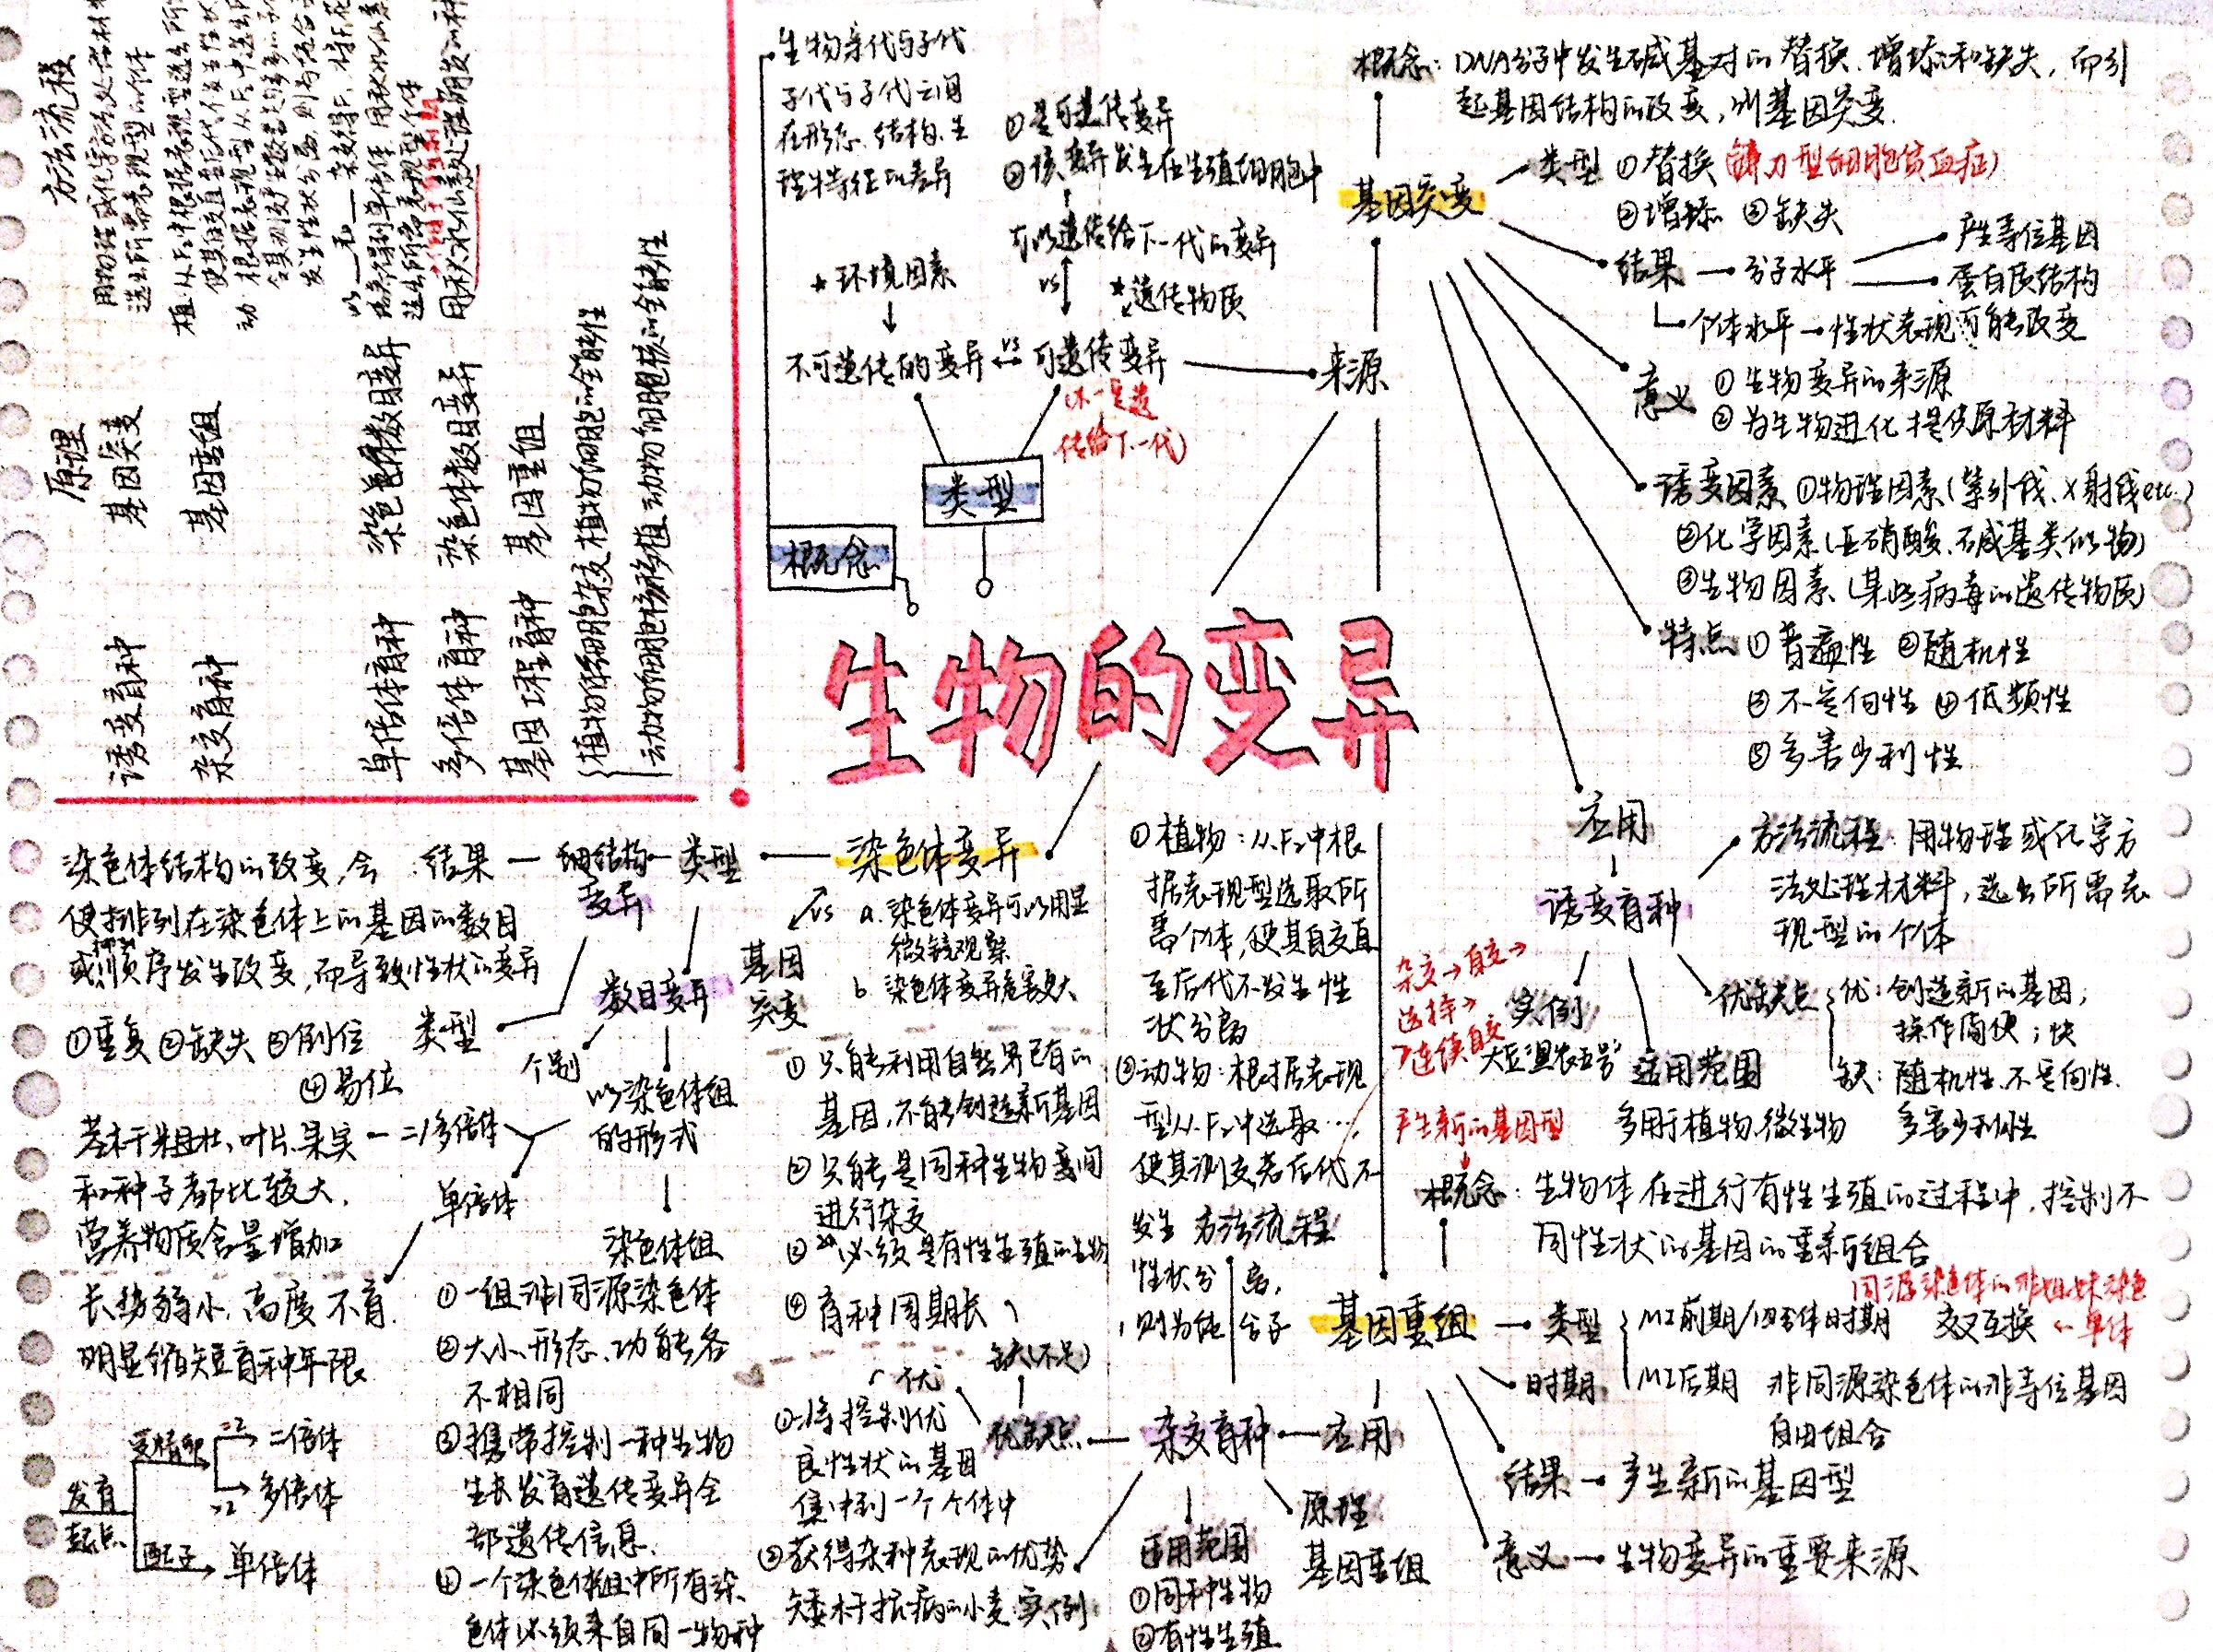 生物的变异
概念
生物亲代与子代
子代与子代之间
在形态、结构、生
理特征的差异
类型
不可遗传的变异
vs
可遗传变异
(不一定遗
传给下一代)
*环境因素
*遗传物质
vs
可以遗传给下一代的变异
①是可遗传变异
②该变异发生在生殖细胞中
来源
基因突变
概念:DNA分子中发生碱基对的替换、增添和缺失,而引
起基因结构的改变,叫基因突变.
类型 ①替换(镰刀型细胞贫血症)
②增添 ③缺失
结果 → 分子水平
产生等位基因
蛋白质结构
个体水平 → 性状表现可能改变
意义 ①生物变异的来源
②为生物进化提供原材料
诱变因素 ①物理因素(紫外线、X射线etc.)
②化学因素(亚硝酸、碱基类似物)
③生物因素(某些病毒的遗传物质)
特点 ①普遍性 ②随机性
③不定向性 ④低频性
⑤多害少利性
应用
诱变育种
方法流程:用物理或化学方
法处理材料,选出所需表
现型的个体
优缺点
优:创造新的基因;
操作简便;快
缺:随机性、不定向性.
多害少利性
实例
大豆黑农五号
适用范围
多用于植物、微生物
杂交→自交→
选择→
连续自交
产生新的基因型
基因重组
概念:生物体在进行有性生殖的过程中,控制不
同性状的基因的重新组合
类型
时期
MI前期/四分体时期 交叉互换
同源染色体的非姐妹染色
单体
MI后期 非同源染色体的非等位基因
自由组合
结果→产生新的基因型
意义→生物变异的重要来源
应用
杂交育种
原理
基因重组
适用范围
①同种生物
②有性生殖
优缺点
优
①将控制优
良性状的基因
集中到一个个体中
②获得杂种表现的优势
矮杆抗病的小麦 实例
缺(不足)
①只能利用自然界已有的
基因,不能创造新基因
②只能是同种生物间
进行杂交
③必须是有性生殖的生物
④育种周期长
方法流程
①植物:从F₂中根
据表现型选取所
需个体,使其自交直
至后代不发生性
状分离
②动物:根据表现
型从F₂中选取…,
使其测交若后代不
发生
性状分离,
则为纯合子
染色体变异
vs
基因
突变
a.染色体变异可以用显
微镜观察
b.染色体变异危害更大
类型
结构
变异
结果
染色体结构的改变,会
使排列在染色体上的基因的数目
或排列顺序发生改变,而导致性状的变异
类型
①重复 ②缺失 ③倒位
④易位
数目变异
个别
以染色体组
的形式
二/多倍体
茎杆粗壮、叶片、果实
和种子都比较大,
营养物质含量增加
单倍体
长势弱小,高度不育.
明显缩短育种年限
染色体组
①一组非同源染色体
②大小、形态、功能各
不相同
③携带控制一种生物
生长发育遗传变异全
部遗传信息.
④一个染色体组中所有染
色体必须来自同一物种
发育
起点
受精卵
=2
二倍体
>2
多倍体
配子
单倍体
原理
方法流程
诱变育种
基因突变
用物理或化学方法处理材料
选出所需表现型的个体
杂交育种
基因重组
单倍体育种
染色体数目变异
多倍体育种
染色体数目变异
基因工程育种
基因重组
植物体细胞杂交 植物细胞的全能性
动物体细胞核移植 动物细胞核的全能性